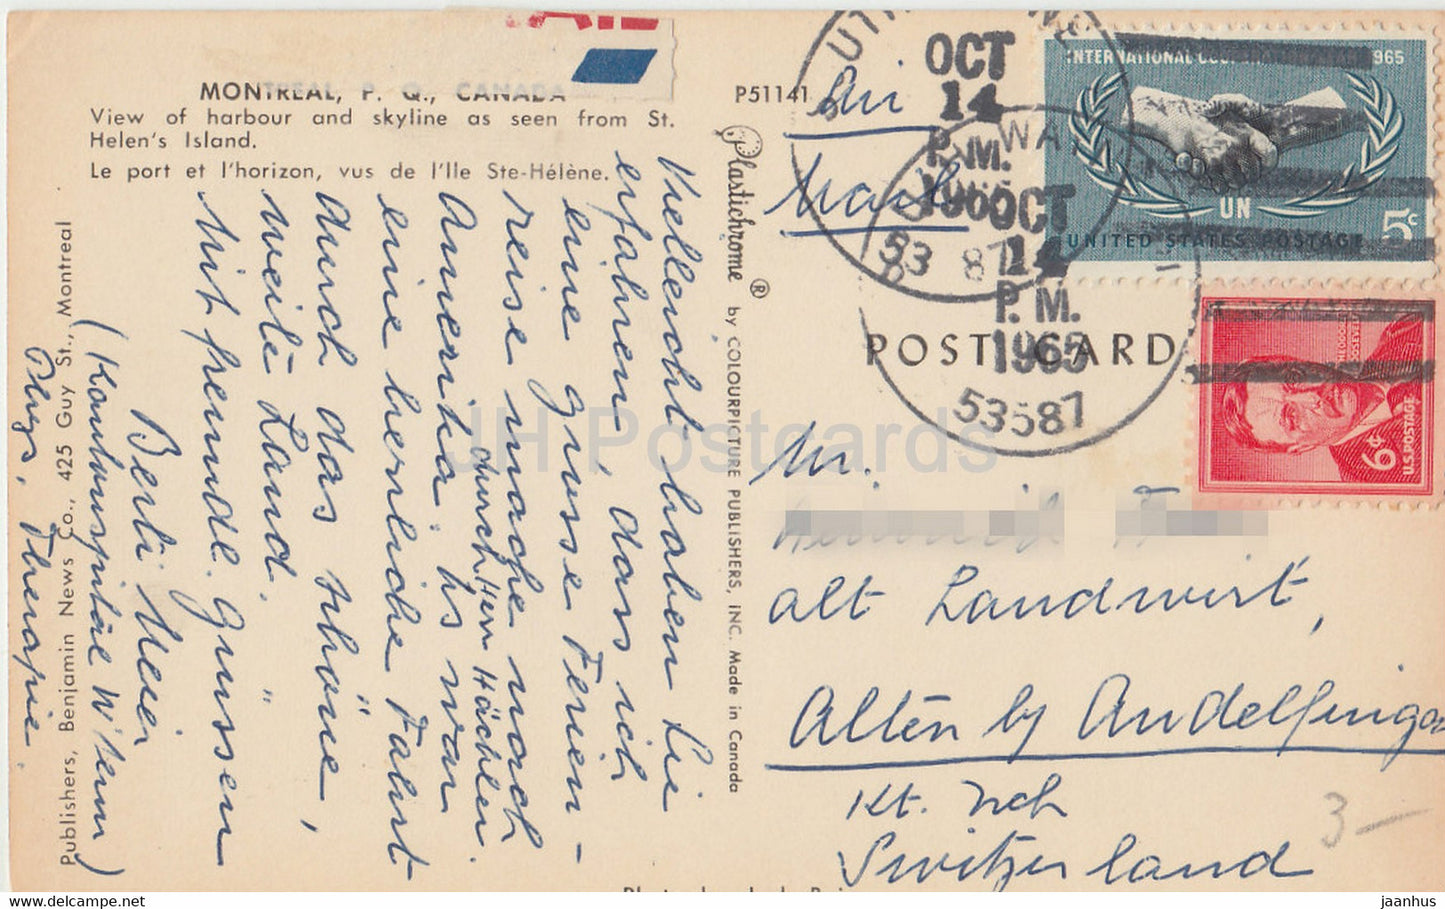 AIL
MONTREAL, P. Q., CANADA
View of harbour and skyline as seen from St.
Helen's Island.
Le port et l'horizon, vus de l'Ile Ste-Hélène.
P51141
Vielleicht haben Sie
erfahren, dass ich
eine grosse Ferien-
reise mache nach
Amerika. Es war
durch Herr Hächler.
eine herrliche Fahrt
durch das schöne,
weite Land.
Mit freundl. Grüssen
Berti Meier
(Kantonsspital W'teur)
Phys. Therapie.
Publishers, Benjamin News Co., 425 Guy St., Montreal
Plastichrome ® by COLOURPICTURE PUBLISHERS, INC. Made in Canada
Air
Mail
OCT
14
P.M.
1965
53587
OCT
14
P.M.
1965
53587
INTERNATIONAL 1965
UN
UNITED STATES POSTAGE 5c
ROOSEVELT
6c
U.S. POSTAGE
POST CARD
Mr.
alt Landwirt,
Alten by Andelfingen
Kt. Zch
Switzerland
3-
JH Postcards
jaanhus